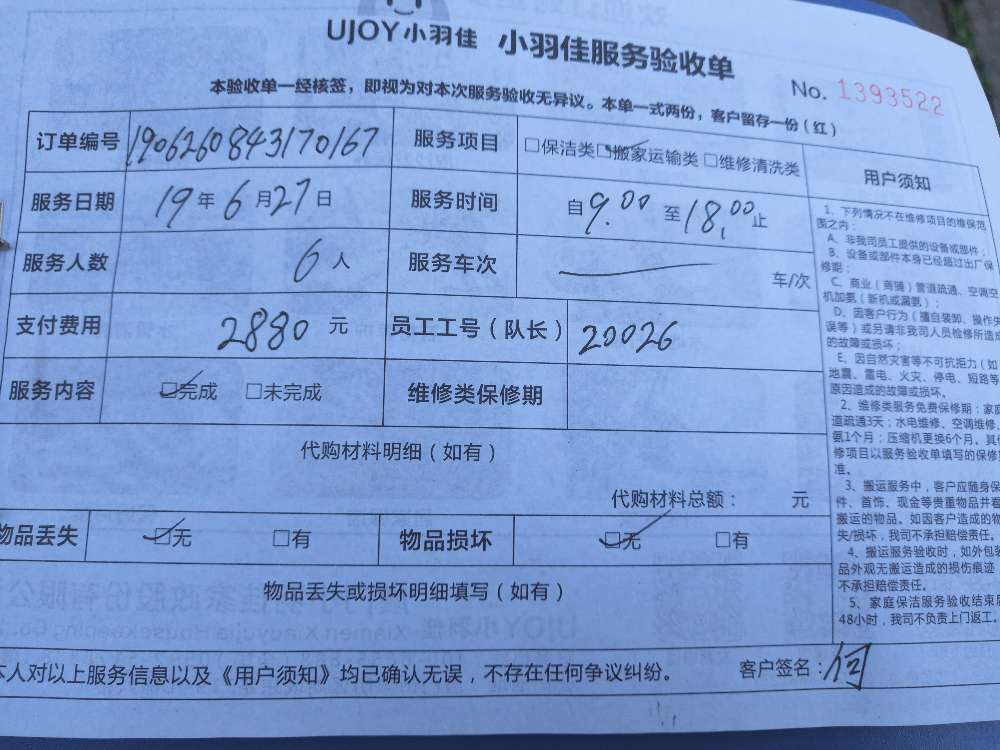 UJOY小羽佳 小羽佳服务验收单
No. 1393522
本验收单一经核签，即视为对本次服务验收无异议。本单一式两份，客户留存一份（红）
订单编号 190626084317​0167 服务项目 □保洁类 ☑搬家运输类 □维修清洗类
服务日期 19年6月27日 服务时间 自9.00至18.00止
服务人数 6人 服务车次 车/次
支付费用 2880元 员工工号（队长） 20026
服务内容 ☑完成 □未完成 维修类保修期
代购材料明细（如有）
代购材料总额： 元
物品丢失 ☑无 □有 物品损坏 ☑无 □有
物品丢失或损坏明细填写（如有）
本人对以上服务信息以及《用户须知》均已确认无误，不存在任何争议纠纷。 客户签名：何
用户须知
1、下列情况不在维修项目的维保范
围之内：
A、非我司员工提供的设备或部件；
B、设备或部件本身已经超过出厂保
修期；
C、商业（商铺）管道疏通、空调空
机加氨（新机或漏氨）；
D、因客户行为（擅自装卸、操作失
误等）或另请非我司人员检修所造成
的故障或损坏；
E、因自然灾害等不可抗拒力（如
地震、雷电、火灾、停电、短路等
原因造成的故障或损坏。
2、维修类服务免费保修期：家庭
道疏通3天；水电维修、空调维修、
氨1个月；压缩机更换6个月。其他
修项目以服务验收单填写的保修
准。
3、搬运服务中，客户应随身保
件、首饰、现金等贵重物品并看
搬运的物品。如因客户造成的物
失/损坏，我司不承担赔偿责任。
4、搬运服务验收时，如外包装
品外观无搬运造成的损伤痕迹
不承担赔偿责任。
5、家庭保洁服务验收结束后
48小时，我司不负责上门返工。